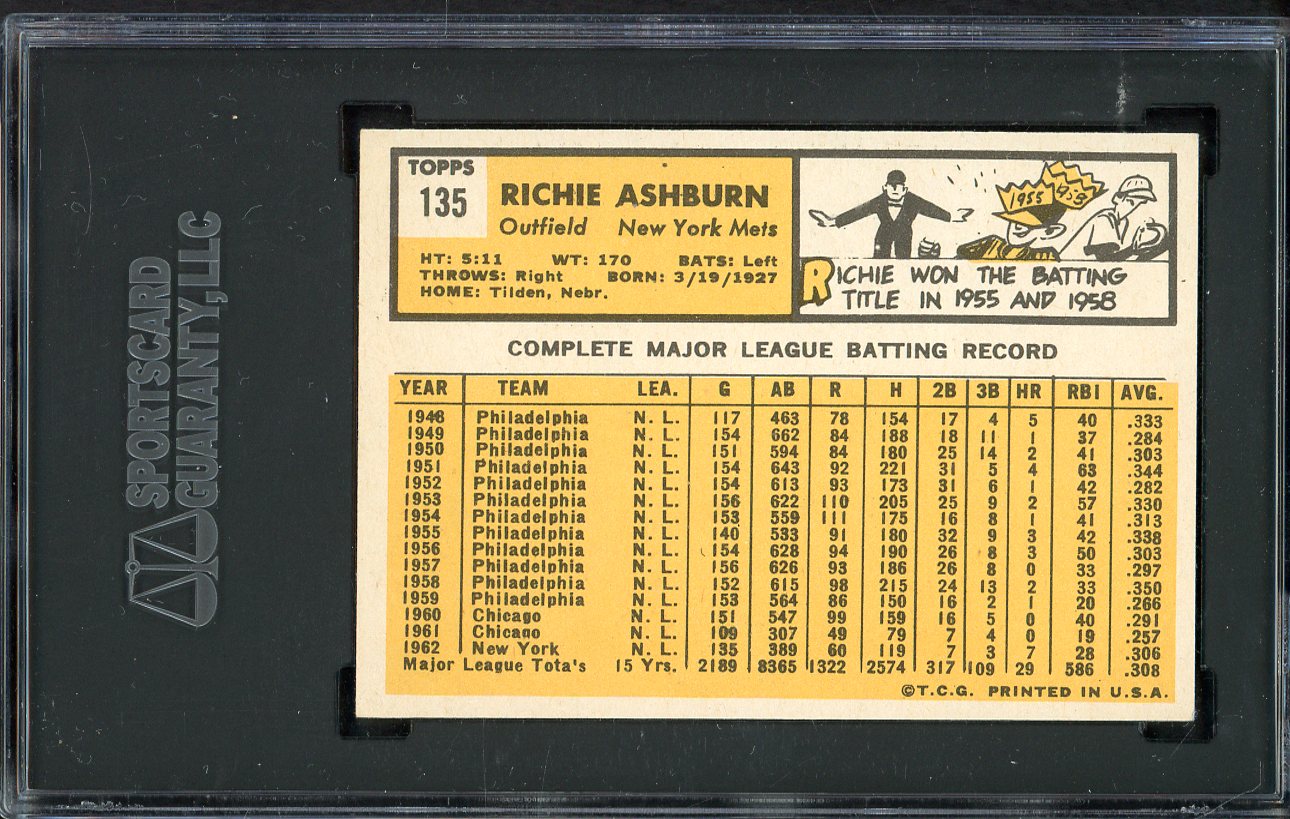 SPORTSCARD
GUARANTY,LLC
TOPPS
135
RICHIE ASHBURN
Outfield New York Mets
HT: 5:11 WT: 170 BATS: Left
THROWS: Right BORN: 3/19/1927
HOME: Tilden, Nebr.
1955 1958
RICHIE WON THE BATTING
TITLE IN 1955 AND 1958
COMPLETE MAJOR LEAGUE BATTING RECORD
YEAR TEAM LEA. G AB R H 2B 3B HR RBI AVG.
1948 Philadelphia N. L. 117 463 78 154 17 4 5 40 .333
1949 Philadelphia N. L. 154 662 84 188 18 11 1 37 .284
1950 Philadelphia N. L. 151 594 84 180 25 14 2 41 .303
1951 Philadelphia N. L. 154 643 92 221 31 5 4 63 .344
1952 Philadelphia N. L. 154 613 93 173 31 6 1 42 .282
1953 Philadelphia N. L. 156 622 110 205 25 9 2 57 .330
1954 Philadelphia N. L. 153 559 111 175 16 8 1 41 .313
1955 Philadelphia N. L. 140 533 91 180 32 9 3 42 .338
1956 Philadelphia N. L. 154 628 94 190 26 8 3 50 .303
1957 Philadelphia N. L. 156 626 93 186 26 8 0 33 .297
1958 Philadelphia N. L. 152 615 98 215 24 13 2 33 .350
1959 Philadelphia N. L. 153 564 86 150 16 2 1 20 .266
1960 Chicago N. L. 151 547 99 159 16 5 0 40 .291
1961 Chicago N. L. 109 307 49 79 7 4 0 19 .257
1962 New York N. L. 135 389 60 119 7 3 7 28 .306
Major League Tota's 15 Yrs. 2189 8365 1322 2574 317 109 29 586 .308
©T.C.G. PRINTED IN U.S.A.